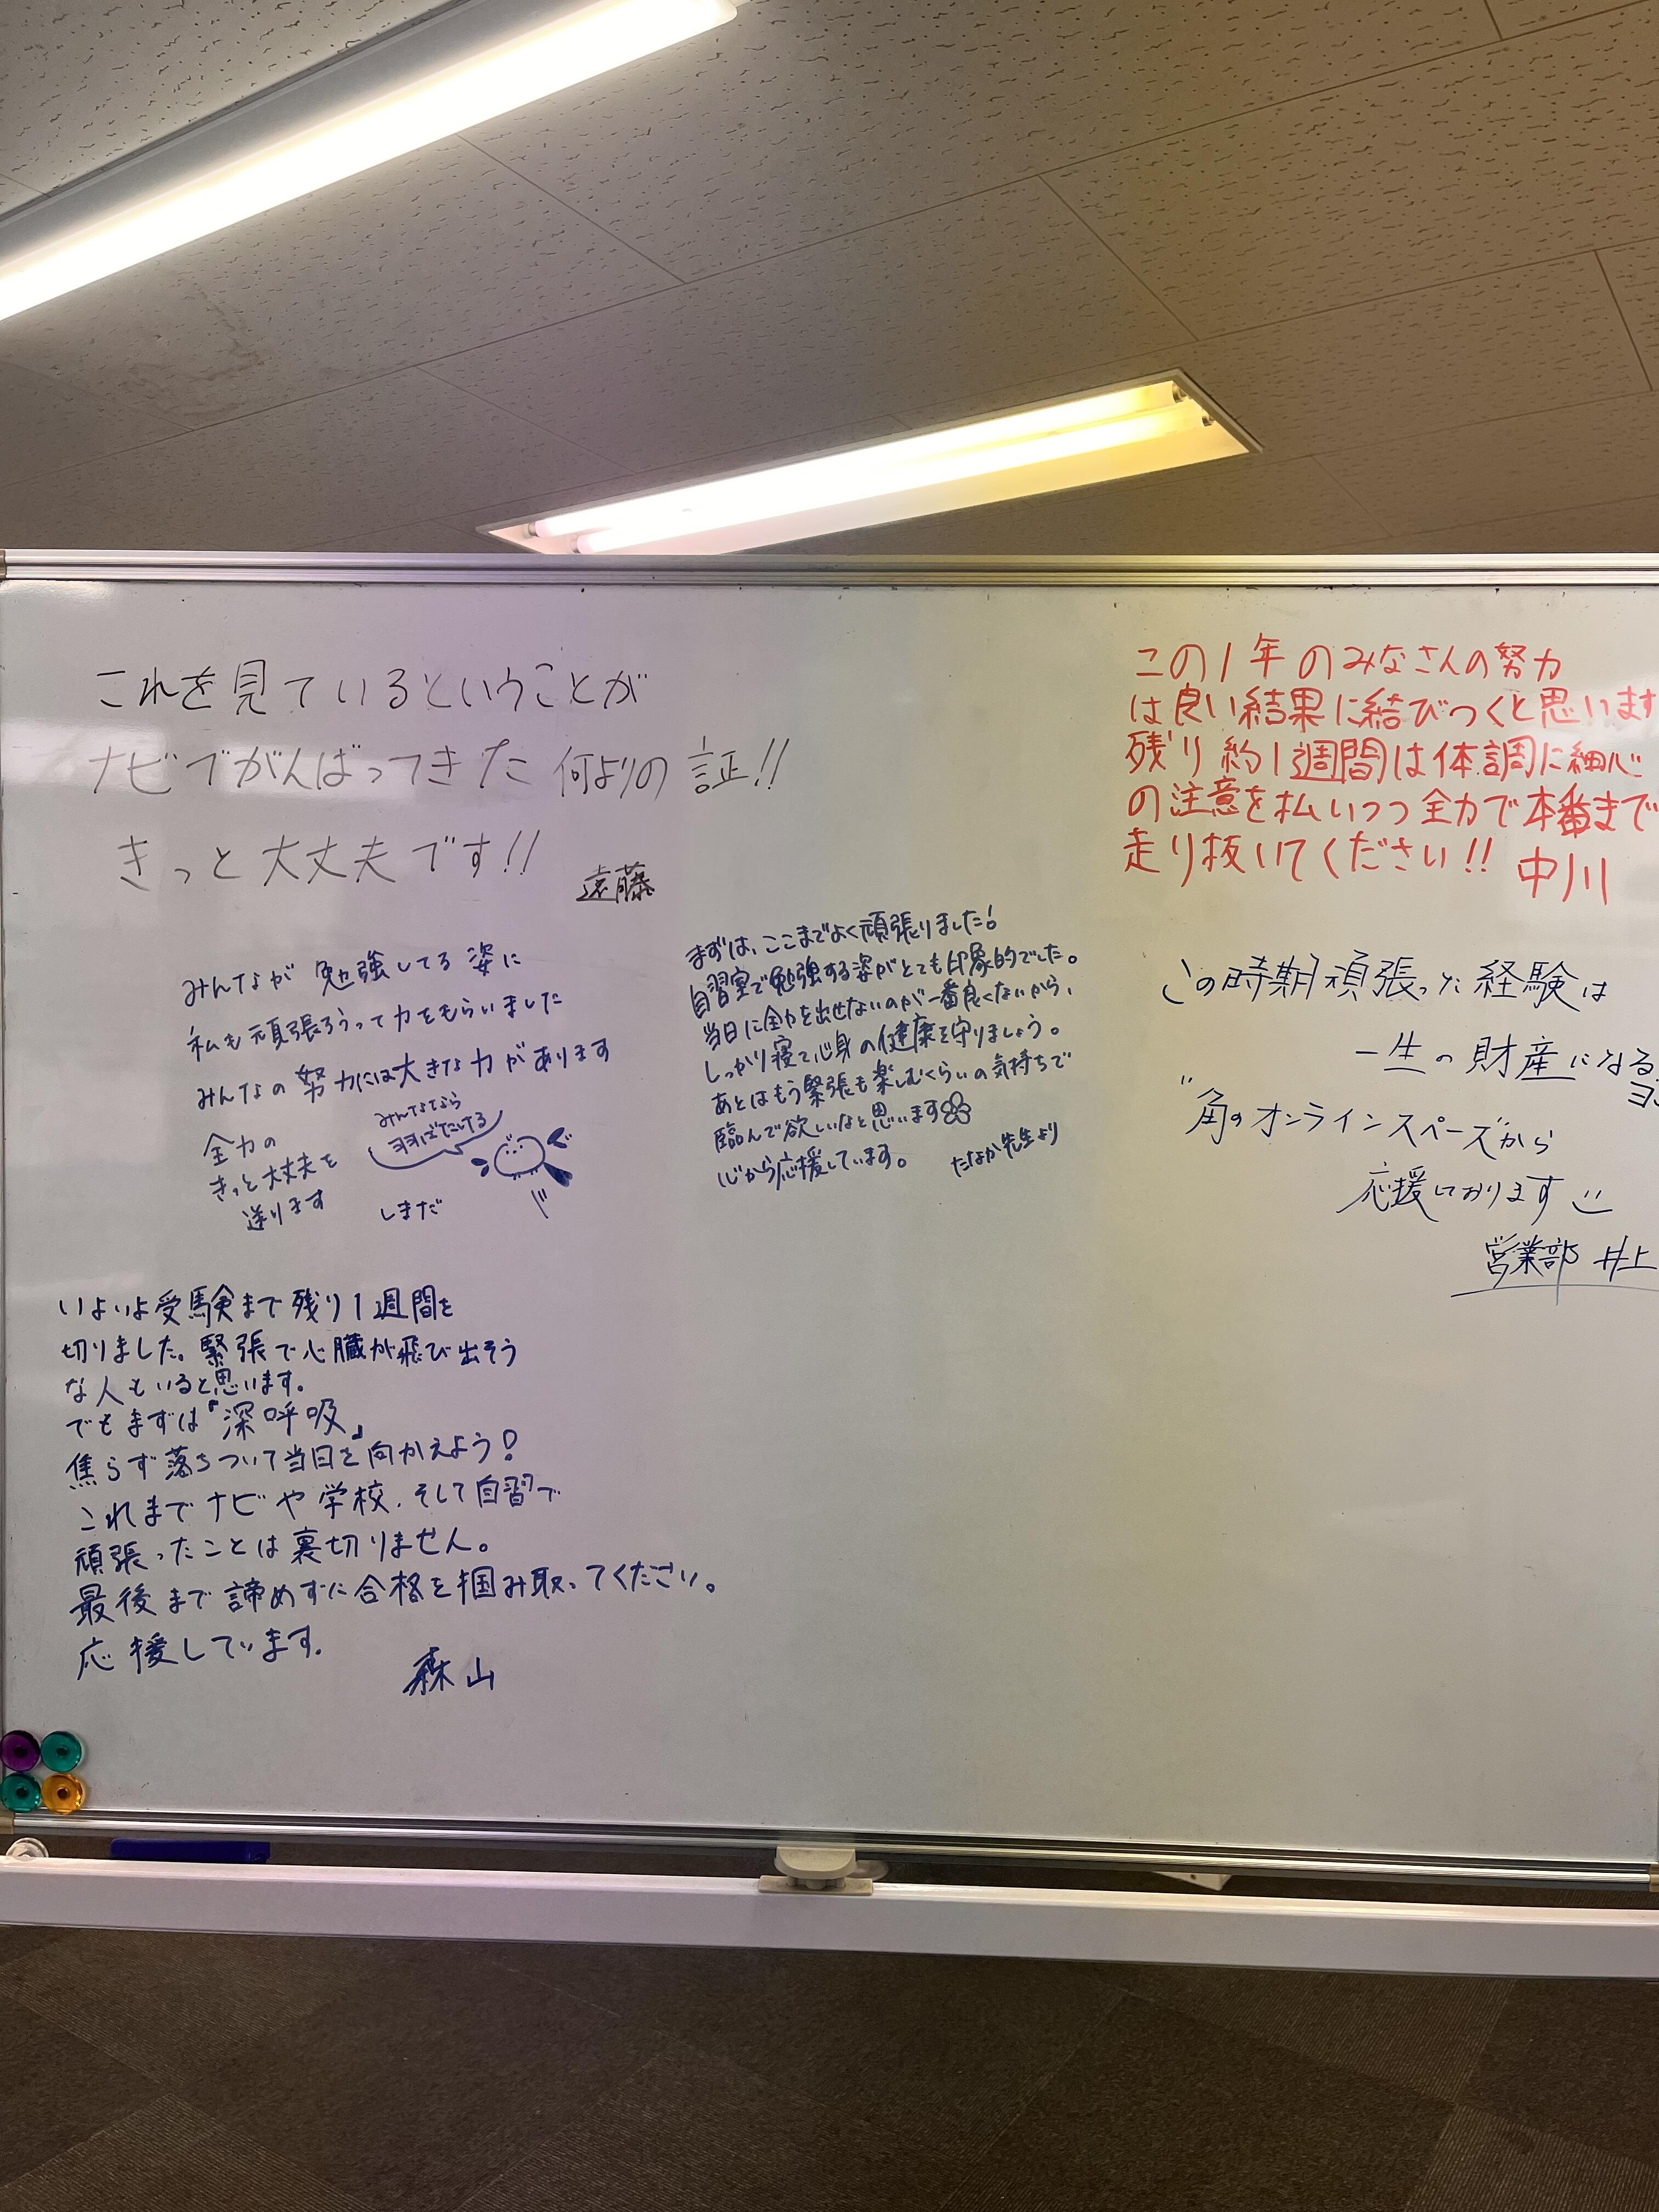 これを見ているということが
ナビでがんばってきた何よりの証!!
きっと大丈夫です!!
遠藤
みんなが勉強してる姿に
私も頑張ろうって力をもらいました
みんなの努力には大きな力があります
全力の
きっと大丈夫を
送ります
みんななら
羽ばたける
しまだ
いよいよ受験まで残り1週間を
切りました。緊張で心臓が飛び出そう
な人もいると思います。
でもまずは『深呼吸』
焦らず落ちついて当日を向かえよう!
これまでナビや学校、そして自習で
頑張ったことは裏切りません。
最後まで諦めずに合格を掴み取ってください。
応援しています。
森山
まずは、ここまでよく頑張りました!
自習室で勉強する姿がとても印象的でした。
当日に全力を出せないのが一番良くないから、
しっかり寝て心身の健康を守りましょう。
あとはもう緊張も楽しむくらいの気持ちで
臨んで欲しいなと思います
心から応援しています。
たなか先生より
この1年のみなさんの努力
は良い結果に結びつくと思います
残り約1週間は体調に細心
の注意を払いつつ全力で本番まで
走り抜いてください!!
中川
この時期頑張った経験は
一生の財産になる
"角のオンラインスペース"から
応援しております
営業部 井上